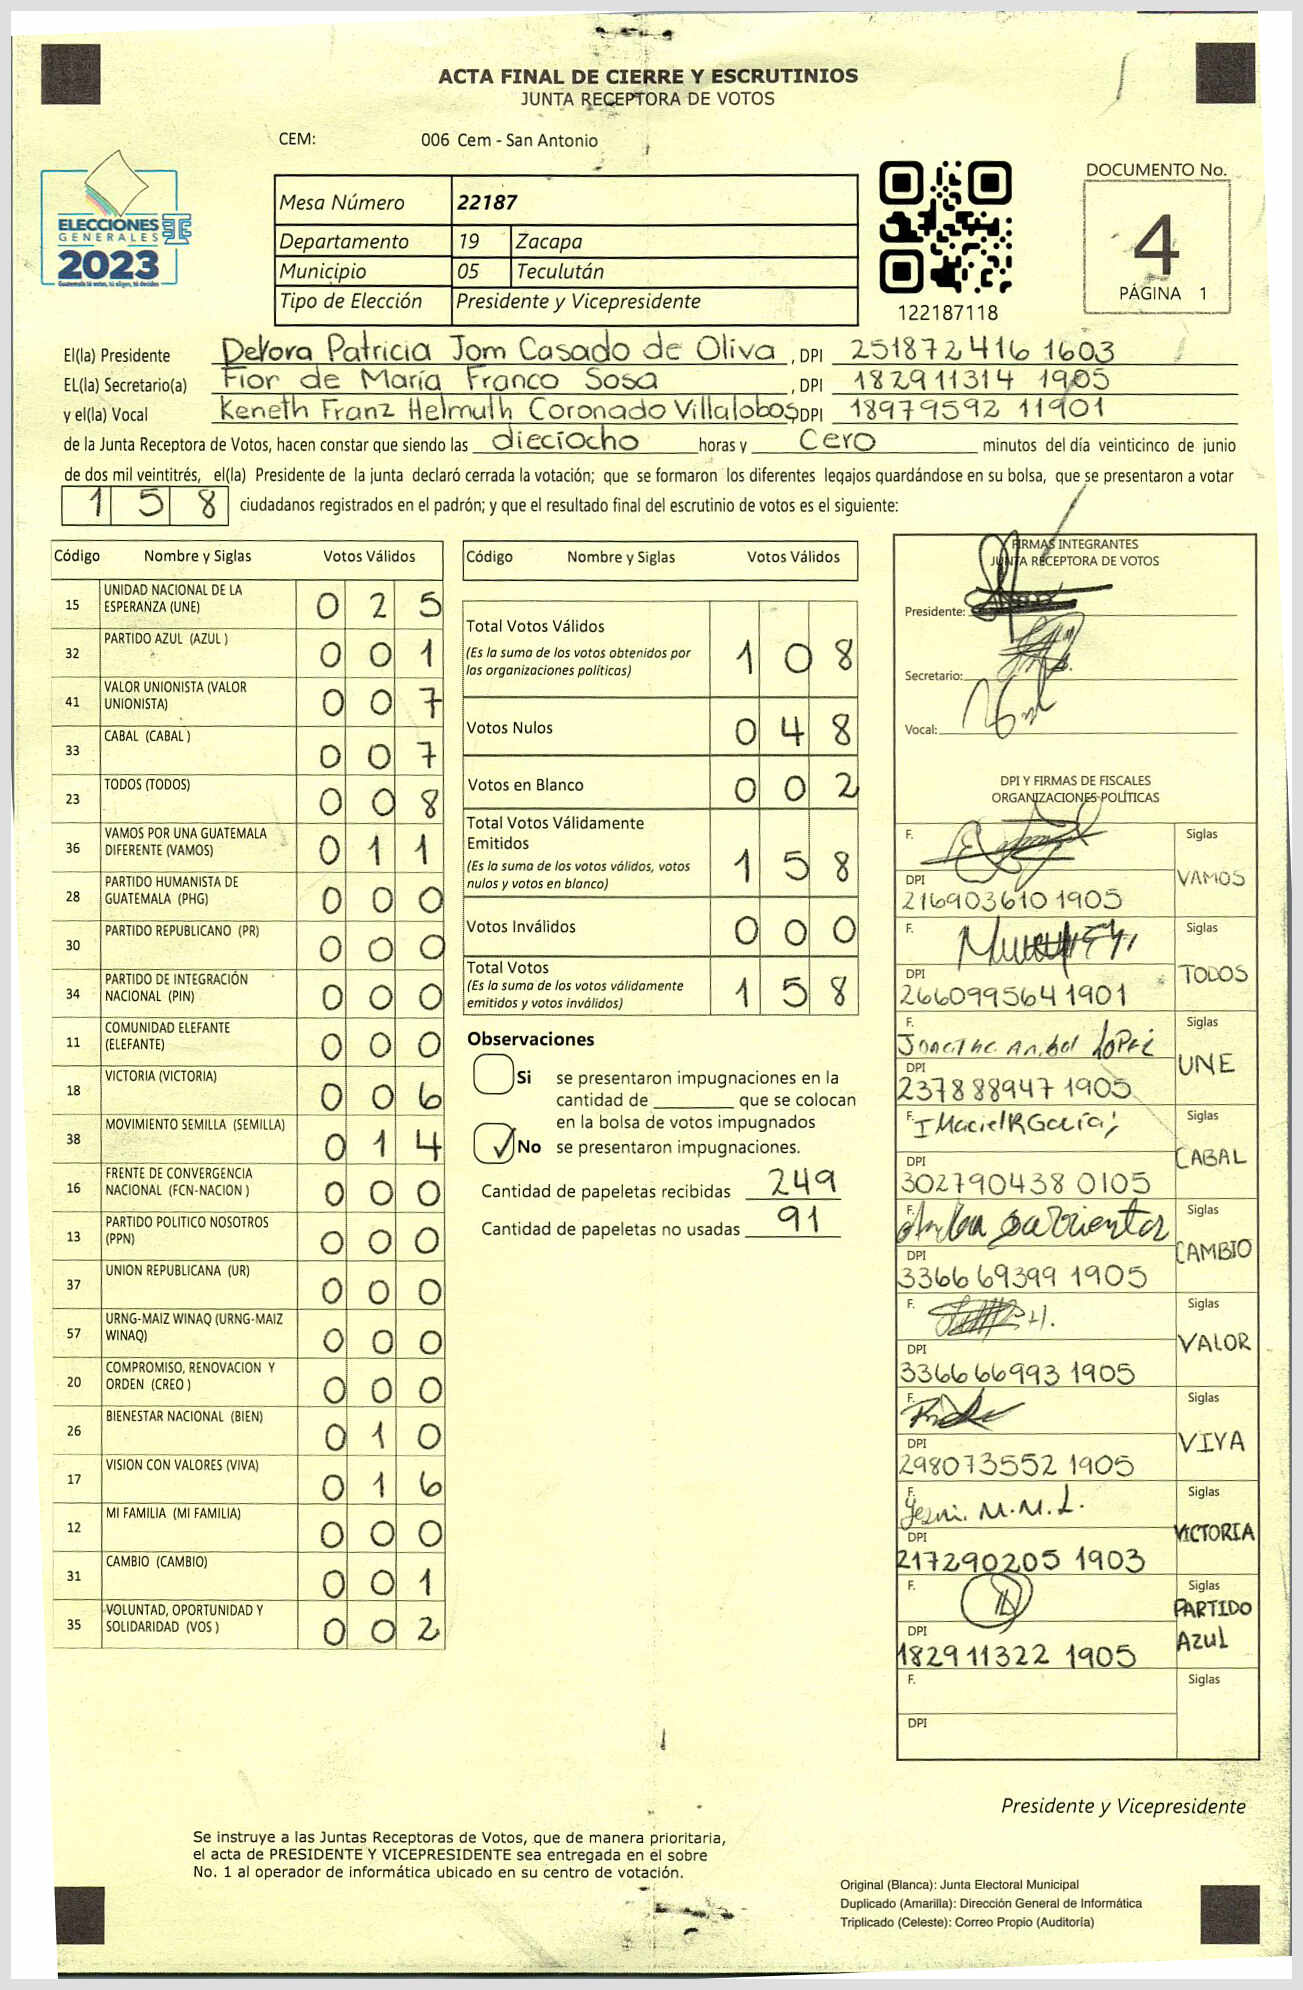 ACTA FINAL DE CIERRE Y ESCRUTINIOS
JUNTA RECEPTORA DE VOTOS
CEM: 006 Cem - San Antonio
DOCUMENTO No.
4
PÁGINA 1
ELECCIONES
GENERALES
2023
Guatemala tú votas, tú eliges, tú decides
Mesa Número 22187
Departamento 19 Zacapa
Municipio 05 Teculután
Tipo de Elección Presidente y Vicepresidente
122187118
El(la) Presidente Devora Patricia Jom Casado de Oliva, DPI 251872416 1603
EL(la) Secretario(a) Flor de María Franco Sosa, DPI 182911314 1905
y el(la) Vocal Keneth Franz Helmuth Coronado Villalobos, DPI 18979592 11901
de la Junta Receptora de Votos, hacen constar que siendo las dieciocho horas y Cero minutos del día veinticinco de junio
de dos mil veintitrés, el(la) Presidente de la junta declaró cerrada la votación; que se formaron los diferentes legajos guardándose en su bolsa, que se presentaron a votar
158 ciudadanos registrados en el padrón; y que el resultado final del escrutinio de votos es el siguiente:
Código Nombre y Siglas Votos Válidos
15 UNIDAD NACIONAL DE LA ESPERANZA (UNE) 025
32 PARTIDO AZUL (AZUL ) 001
41 VALOR UNIONISTA (VALOR UNIONISTA) 007
33 CABAL (CABAL ) 007
23 TODOS (TODOS) 008
36 VAMOS POR UNA GUATEMALA DIFERENTE (VAMOS) 011
28 PARTIDO HUMANISTA DE GUATEMALA (PHG) 000
30 PARTIDO REPUBLICANO (PR) 000
34 PARTIDO DE INTEGRACIÓN NACIONAL (PIN) 000
11 COMUNIDAD ELEFANTE (ELEFANTE) 000
18 VICTORIA (VICTORIA) 006
38 MOVIMIENTO SEMILLA (SEMILLA) 014
16 FRENTE DE CONVERGENCIA NACIONAL (FCN-NACION ) 000
13 PARTIDO POLITICO NOSOTROS (PPN) 000
37 UNION REPUBLICANA (UR) 000
57 URNG-MAIZ WINAQ (URNG-MAIZ WINAQ) 000
20 COMPROMISO, RENOVACION Y ORDEN (CREO ) 000
26 BIENESTAR NACIONAL (BIEN) 010
17 VISION CON VALORES (VIVA) 016
12 MI FAMILIA (MI FAMILIA) 000
31 CAMBIO (CAMBIO) 001
35 VOLUNTAD, OPORTUNIDAD Y SOLIDARIDAD (VOS ) 002
Código Nombre y Siglas Votos Válidos
Total Votos Válidos 108
(Es la suma de los votos obtenidos por
las organizaciones políticas)
Votos Nulos 048
Votos en Blanco 002
Total Votos Válidamente
Emitidos 158
(Es la suma de los votos válidos, votos
nulos y votos en blanco)
Votos Inválidos 000
Total Votos 158
(Es la suma de los votos válidamente
emitidos y votos inválidos)
Observaciones
Si se presentaron impugnaciones en la
cantidad de ________ que se colocan
en la bolsa de votos impugnados
✓ No se presentaron impugnaciones.
Cantidad de papeletas recibidas 249
Cantidad de papeletas no usadas 91
FIRMAS INTEGRANTES
JUNTA RECEPTORA DE VOTOS
Presidente:
Secretario:
Vocal:
DPI Y FIRMAS DE FISCALES
ORGANIZACIONES POLÍTICAS
F. Siglas
VAMOS
DPI
216903610 1905
F. Siglas
TODOS
DPI
266099564 1901
F. Siglas
UNE
DPI
237888947 1905
F. Siglas
CABAL
DPI
302790438 0105
F. Siglas
CAMBIO
DPI
336669399 1905
F. Siglas
VALOR
DPI
336666993 1905
F. Siglas
VIVA
DPI
298073552 1905
F. Siglas
M.M.L.
VICTORIA
DPI
217290205 1903
F. Siglas
PARTIDO
AZUL
DPI
182911322 1905
F. Siglas
DPI
Presidente y Vicepresidente
Se instruye a las Juntas Receptoras de Votos, que de manera prioritaria,
el acta de PRESIDENTE Y VICEPRESIDENTE sea entregada en el sobre
No. 1 al operador de informática ubicado en su centro de votación.
Original (Blanca): Junta Electoral Municipal
Duplicado (Amarilla): Dirección General de Informática
Triplicado (Celeste): Correo Propio (Auditoría)